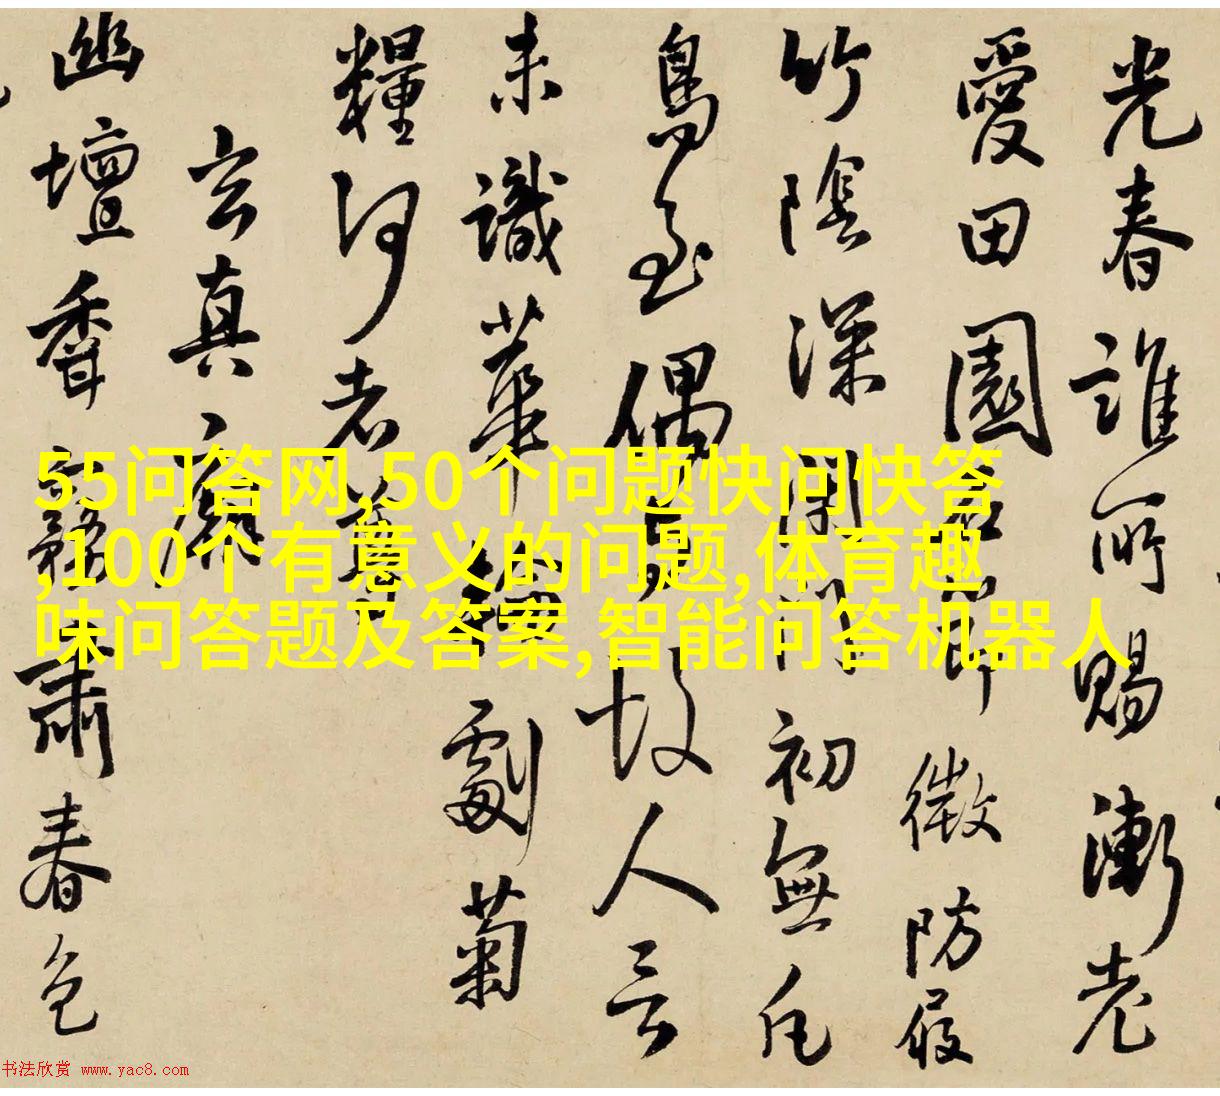 光春誰所賜漸老
愛田園微防屐
竹陰深閉門初無凡
鳥至偶有故人言
未識華劇菊
糧何
玄真
幽壇春色
55问答网,50个问题快问快答
,100个有意义的问题,体育趣
味问答题及答案,智能问答机器人
书法欣赏 www.yac8.com